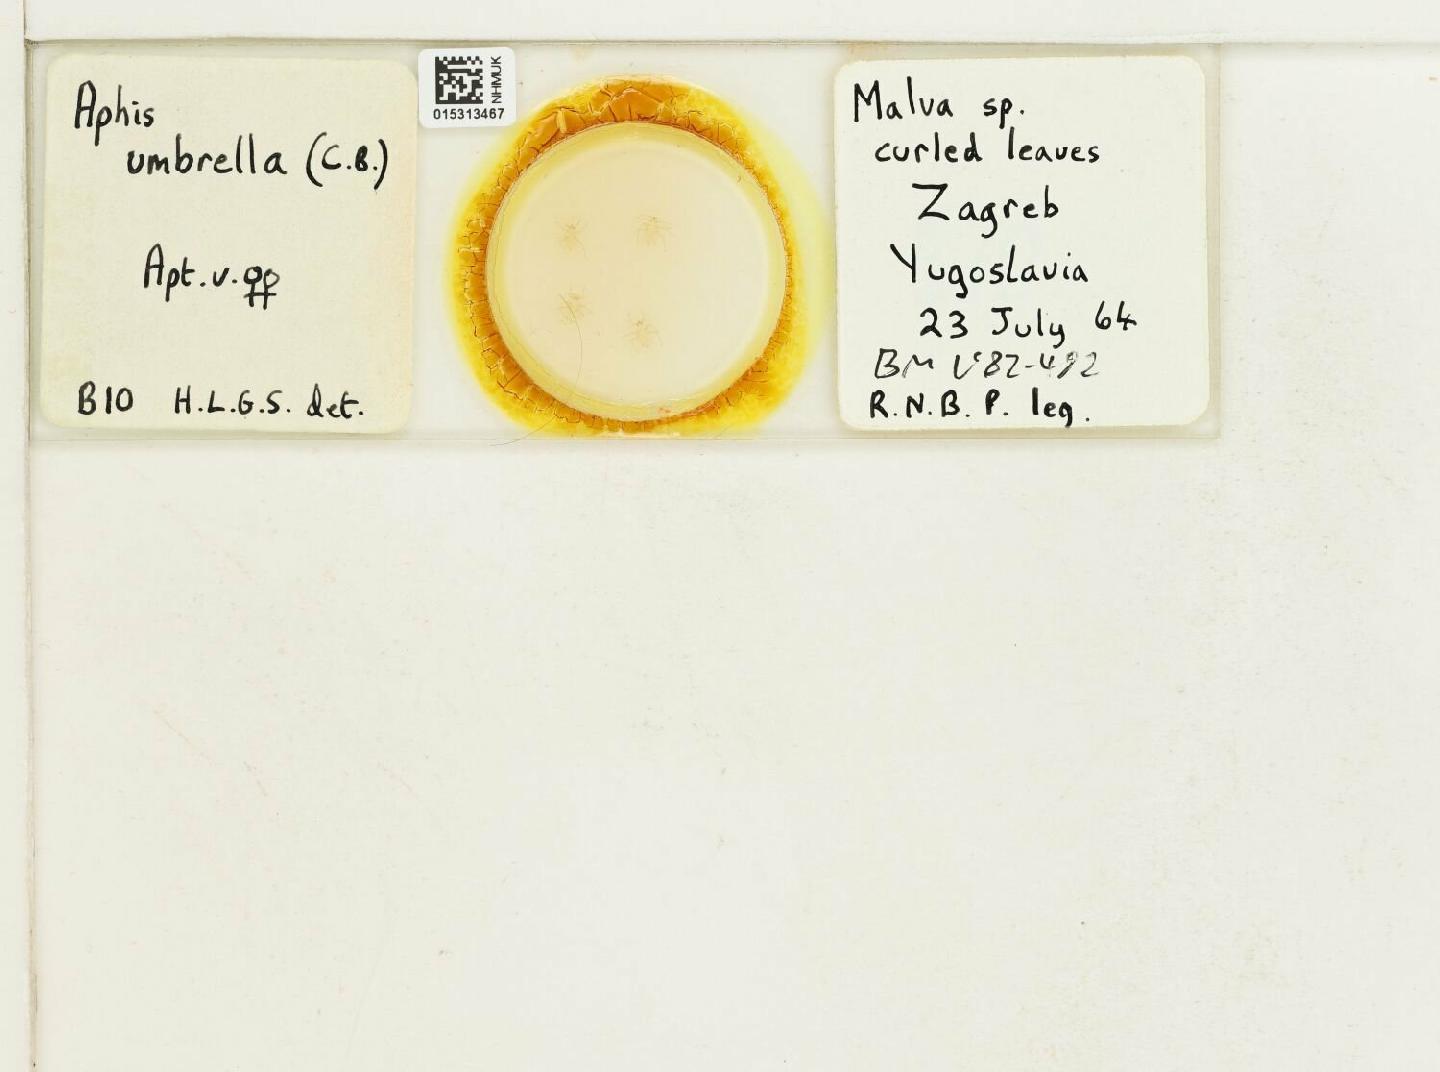 Aphis
umbrella (C.B.)
Apt. v. ♀♀
B10 H.L.G.S. det.
NHMUK
015313467
Malva sp.
curled leaves
Zagreb
Yugoslavia
23 July 64
BM 1982-492
R.N.B. P. leg.